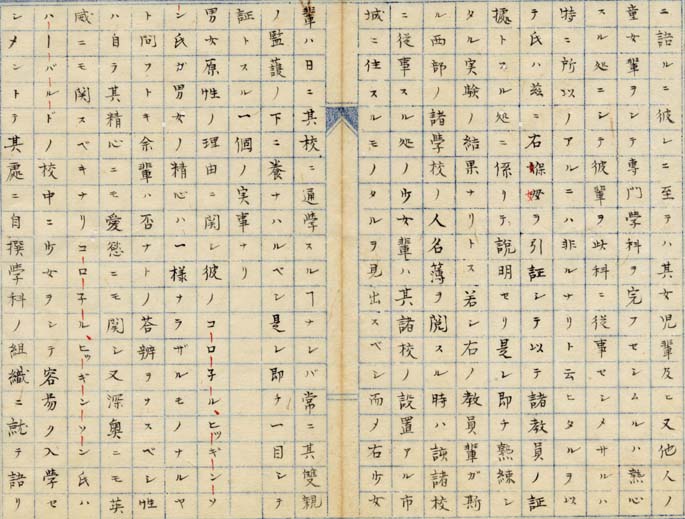 ニ語ルニ彼レニ至テハ其女児輩及ヒ又他人ノ
童女輩ヲシテ専門学科ヲ完フセシムルハ熱心
スル処ニシテ彼輩ヲ此科ニ従事セシメサルハ
特ニ所以ノアルニハ非ルナリト云ヒタルヲ以
テ氏ハ茲ニ右保姆ヲ引証シテ以テ諸教員ノ証
據トスル処ニ係リテ説明セリ是レ即チ熟練シ
タル実験ノ結果ナリトス若シ右ノ教員輩ガ斯
ル西部ノ諸學校ノ人名薄ヲ閲スル時ハ該諸校
ニ従事スル処ノ少女輩ハ其諸校ノ設置アル市
城ニ住スルモノタルヲ見出スベシ而メ右少女
輩ハ日ニ其校ニ通学スルヿナレバ常ニ其雙親
ノ監護ノ下ニ養ナハルベシ是レ即チ一目シテ
証トスル一個ノ実事ナリ
男女原性ノ理由ニ関シ彼ノコーロ子ル、ヒッギーンソ
ン氏ガ男女ノ精心ハ一様ナラザルモノナルヤ
ト問フトキ余輩ハ否ナトノ答辨ヲナスベシ性
ハ自ラ其精心ニモ愛慾ニモ関シ又深奥ニモ英
威ニモ関スベキナリコーロ子ル、ヒッギーンソーン氏ハ
ハーバールドノ校中ニ少女ヲシテ容昜ク入学セ
シメントテ其處ニ自撰学科ノ組織ニ就テ語リ